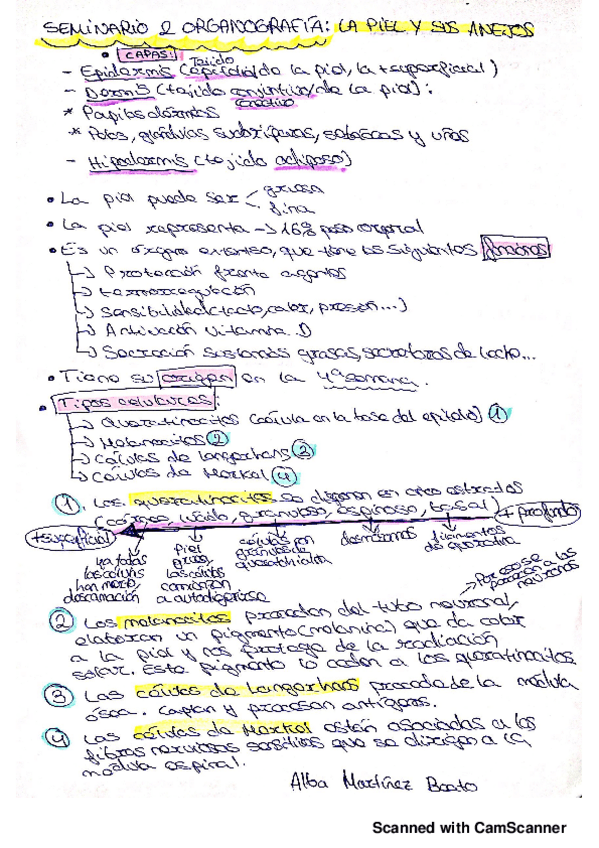 SEMINARIO 2 ORGANOGRAFÍA: LA PIEL Y SUS ANEJOS
• CAPAS:
Tejido
- Epidermis (epitelial de la piel, la + superficial)
- Dermis (tejido conjuntivo de la piel):
conectivo
* Papilas dérmicas
* Pelos, glándulas sudoríparas, sebáceas y uñas
- Hipodermis (tejido adiposo)
• La piel puede ser gruesa
fina
• La piel representa -> 16% peso corporal
• Es un órgano extenso, que tiene las siguientes funciones
-> Protección frente agentes
-> termorregulación
-> Sensibilidad (tacto, calor, presión...)
-> Activación vitamina D
-> Secreción sustancias grasas, secretoras de leche...
• Tiene su origen en la 4ª semana.
• Tipos celulares:
-> Queratinocitos (célula en la base del epitelio) 1
-> Melanocitos 2
-> Células de Langerhans 3
-> Células de Merkel 4
1. Los queratinocitos se disponen en cinco estratos
(córneo, lúcido, granuloso, espinoso, basal) + profundo
+ superficial
ya todas las células han muerto, descamación
Piel gruesa, las células comienzan a autodigerirse
células con gránulos de queratohialina
desmosomas
filamentos de queratina
Por eso se parecen a las neuronas
2 Los melanocitos proceden del tubo neuronal,
elaboran un pigmento (melanina) que da color
a la piel y nos protege de la radiación
solar. Este pigmento lo ceden a los queratinocitos
3 Las células de Langerhans procede de la médula
ósea. Captan y procesan antígenos.
4 Las células de Merkel están asociadas a las
fibras nerviosas sensitivas que se dirigen a la
médula espinal.
Alba Martínez
Scanned with CamScanner